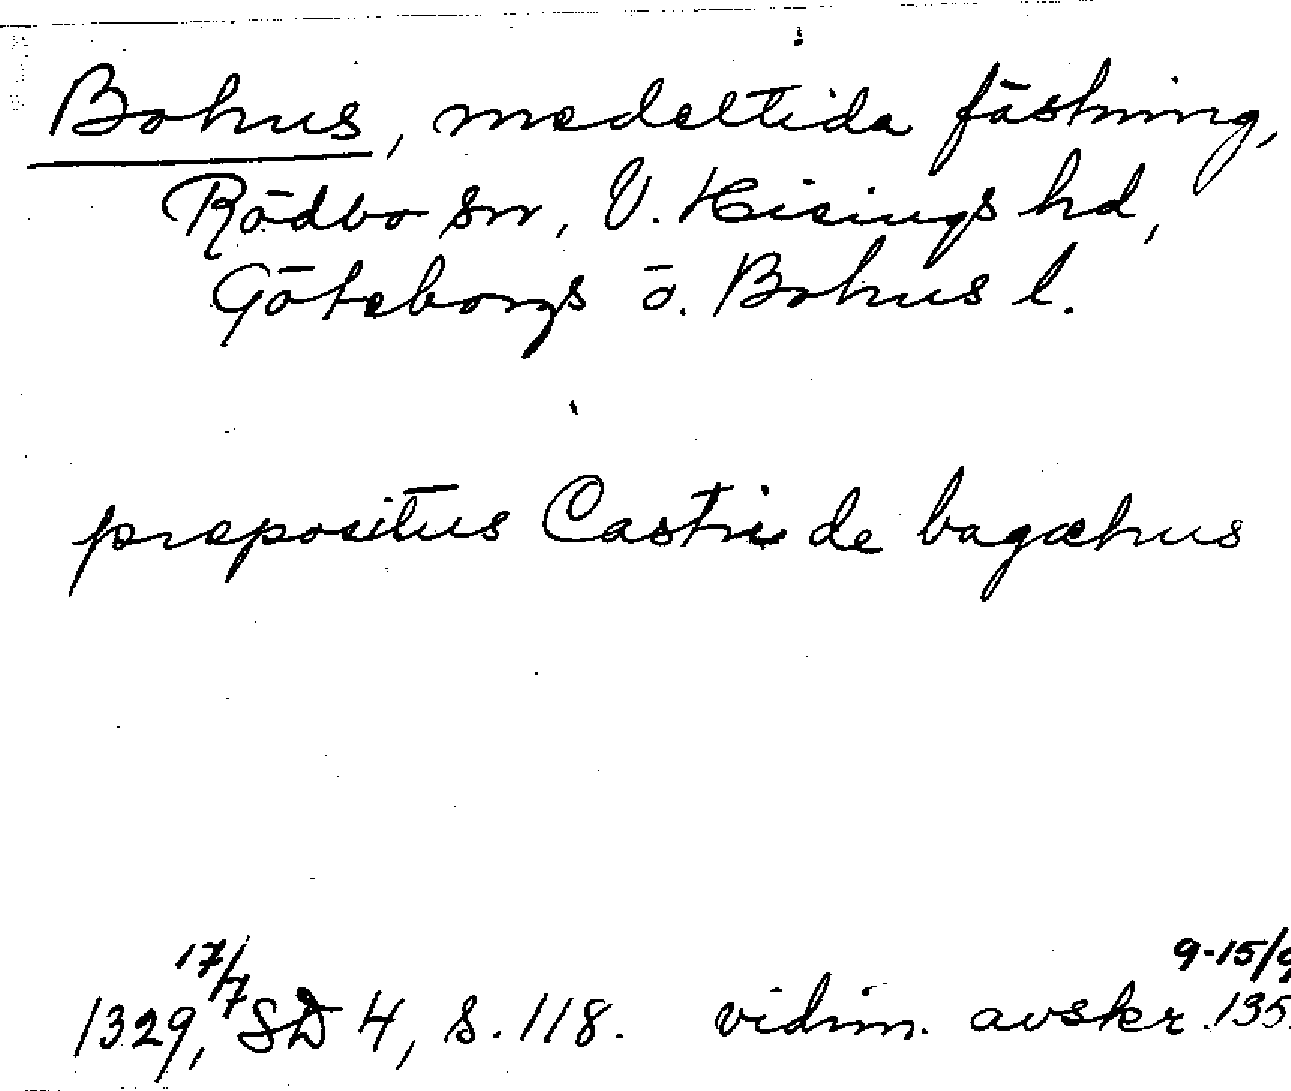 Bohus, medeltida fästning,
Rödbo sn, V. Hisings hd,
Göteborgs o. Bohus l.
prepositus Castri de bagæhus
17/7 9-15/9
1329, SD 4, s. 118. vidim. avskr. 135